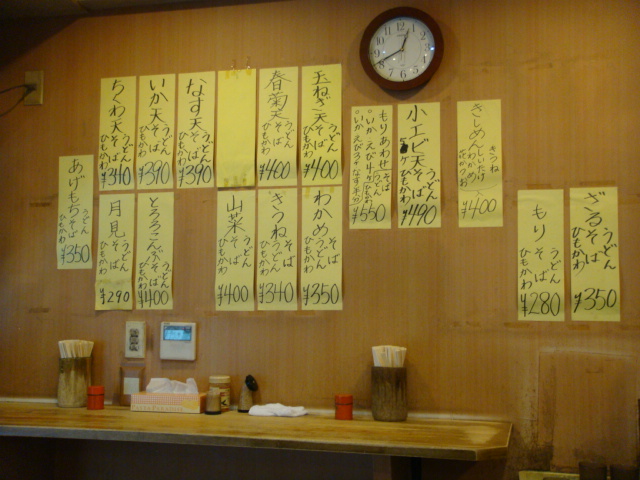 ざるそば
うどん
¥350
もりそば
ひもかわ
¥280
きつね
きしめん
¥400
小エビ天そば
うどん
ひもかわ
¥490
もりあわせそば
¥550
玉ねぎ天そば
うどん
ひもかわ
¥400
春菊天そば
うどん
ひもかわ
¥400
なす天そば
うどん
ひもかわ
¥390
いか天そば
うどん
ひもかわ
¥390
ちくわ天そば
うどん
ひもかわ
¥340
わかめそば
うどん
ひもかわ
¥350
きつねそば
うどん
ひもかわ
¥340
山菜そば
うどん
ひもかわ
¥400
とろろこんぶそば
うどん
ひもかわ
¥400
月見そば
うどん
ひもかわ
¥290
あげもちそば
うどん
ひもかわ
¥350